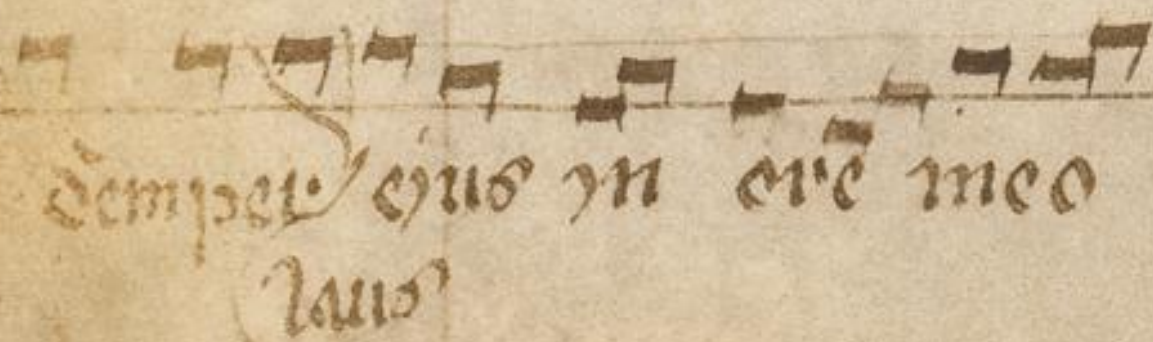 Semper eius yn ore meo
laus